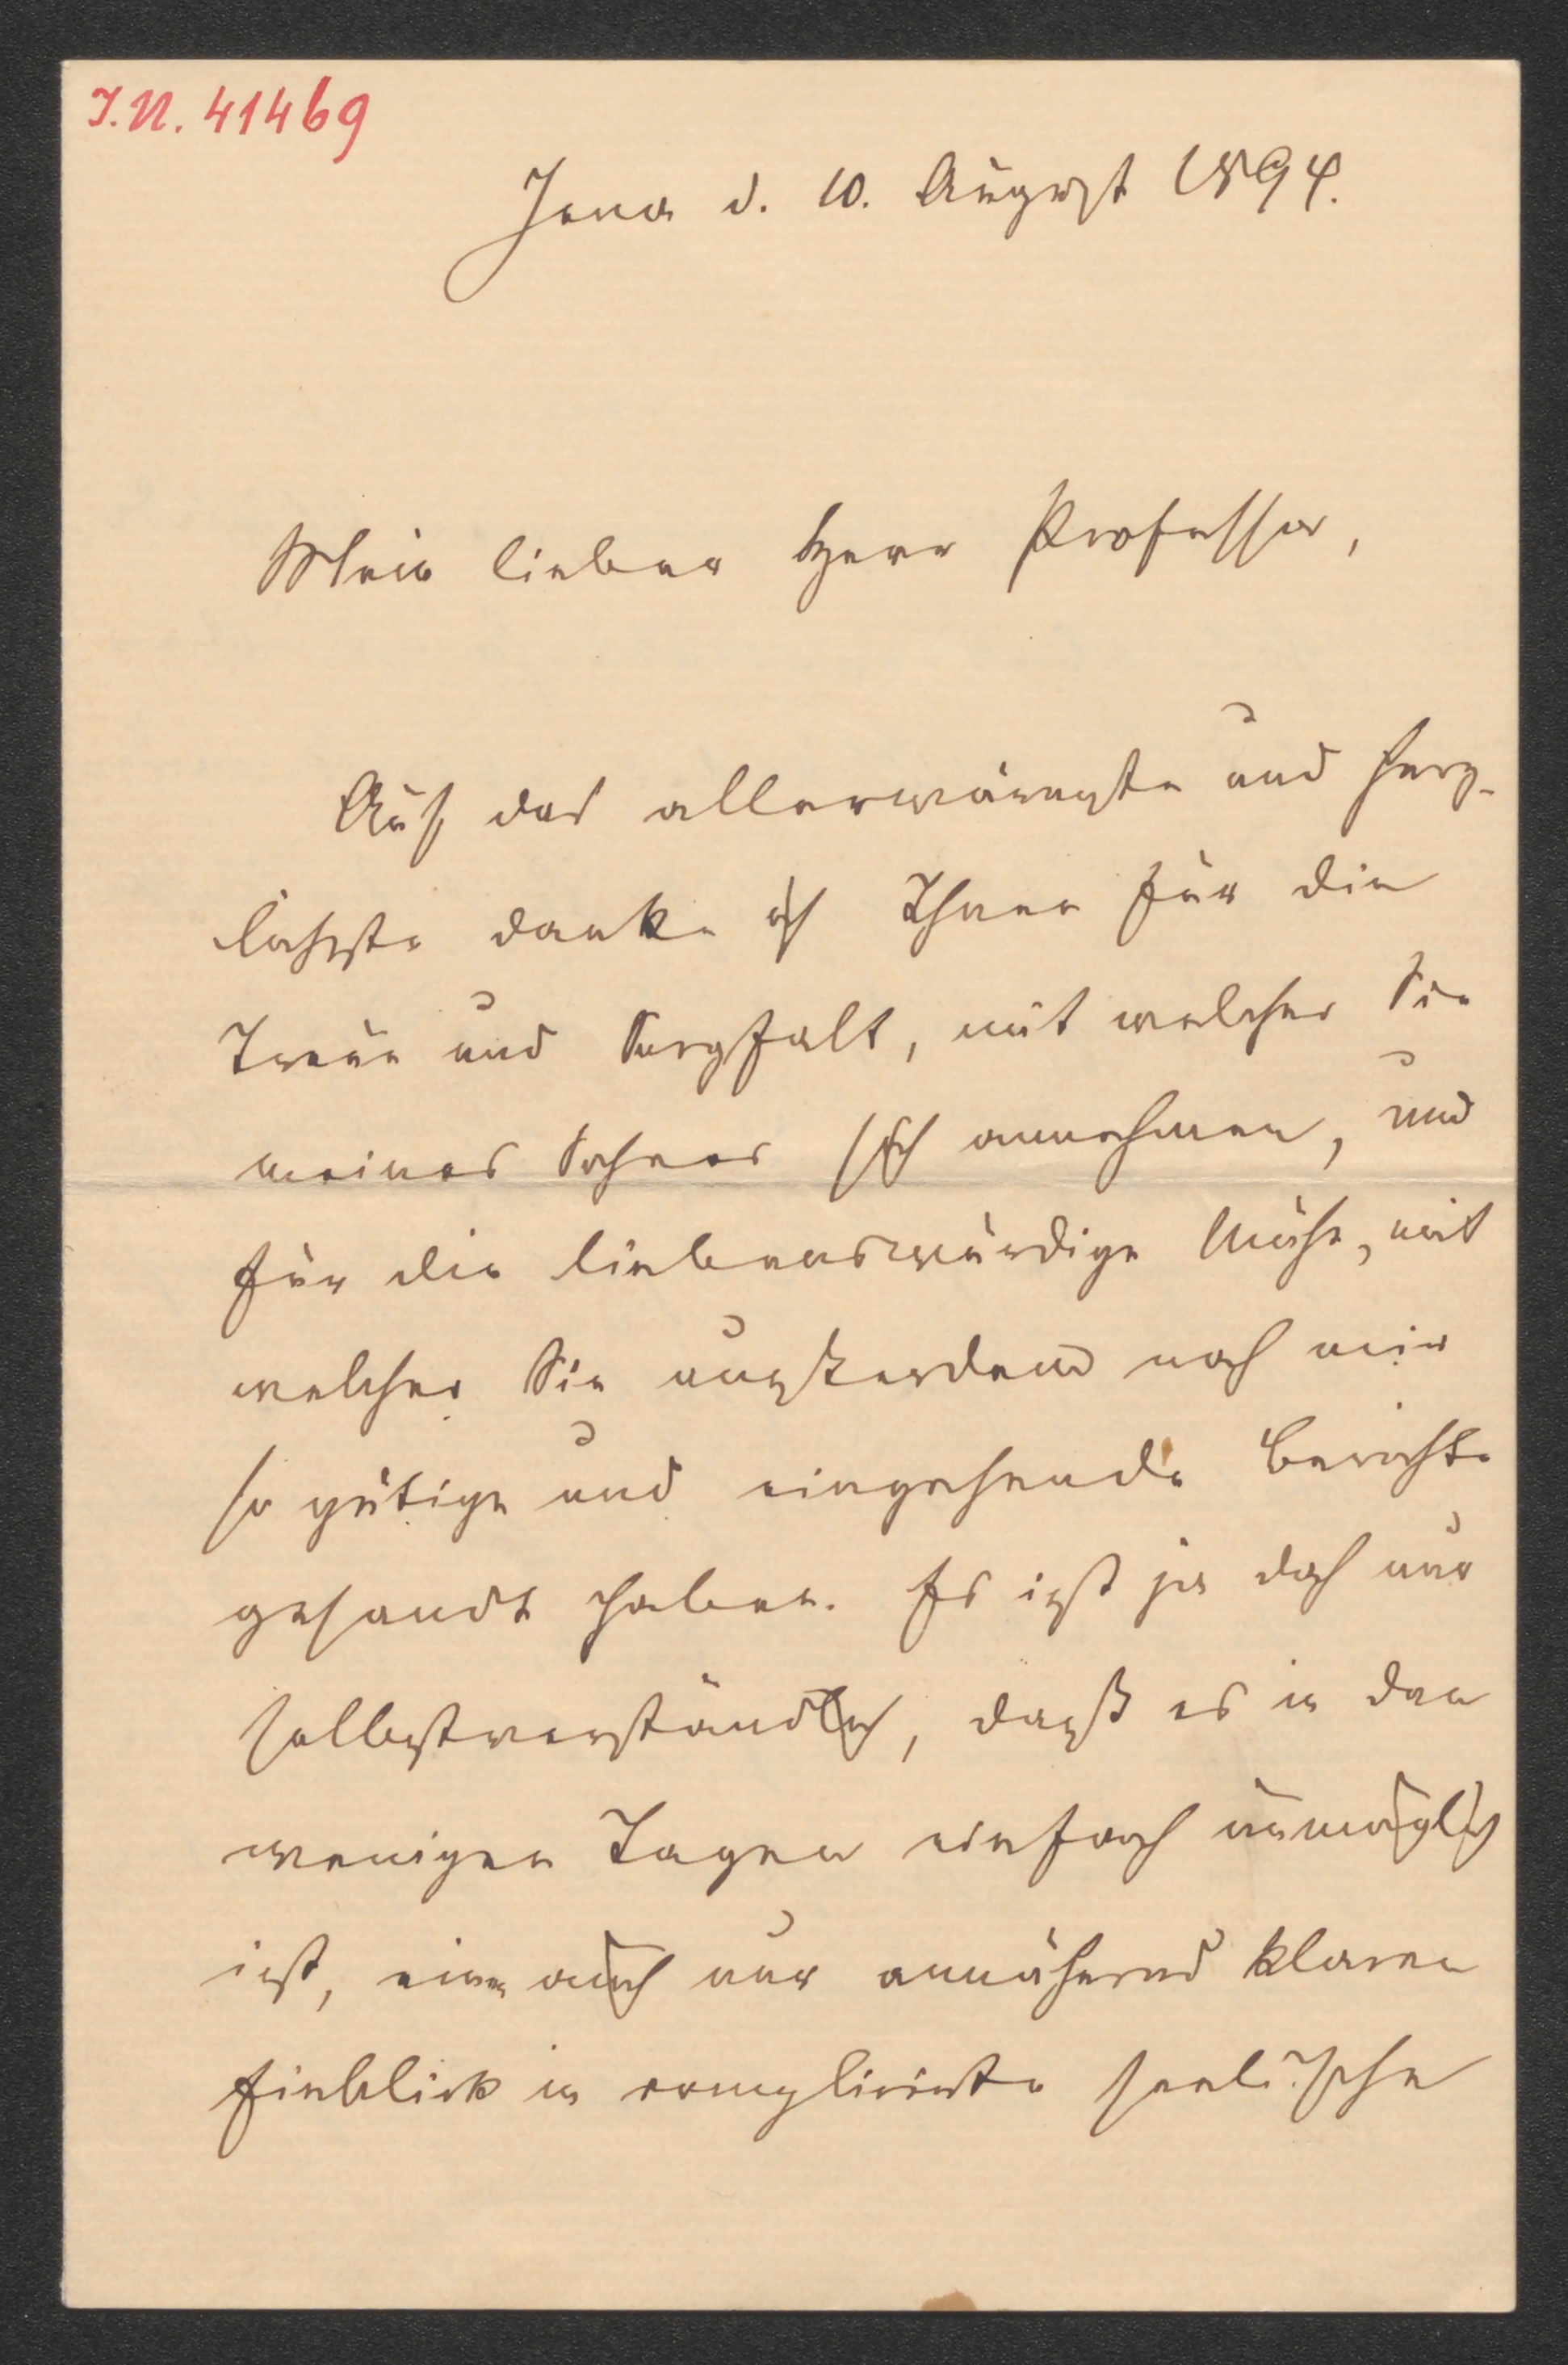 I.N. 41469
Jena d. 10. August 1894.
Mein lieber Herr Professor,
Auf das allerwärmste und herz-
lichste danke ich Ihnen für die
Treue und Sorgfalt, mit welcher Sie
meines Sohnes sich annehmen, und
für die liebenswürdige Mühe, mit
welcher Sie ausserdem noch mir
so gütige und eingehende Berichte
gesandt haben. Es ist ja doch nur
selbstverständlich, daß es in den
wenigen Tagen einfach unmöglich
ist, einen auch nur annähernd klaren
Einblick in complicirte seelische